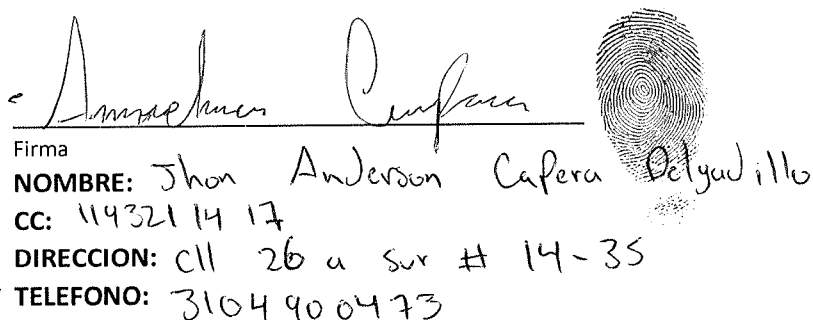 Firma
NOMBRE: Jhon Anderson Capera Delgadillo
CC: 1193211417
DIRECCION: Cll 26 a sur # 14-35
TELEFONO: 3104900473